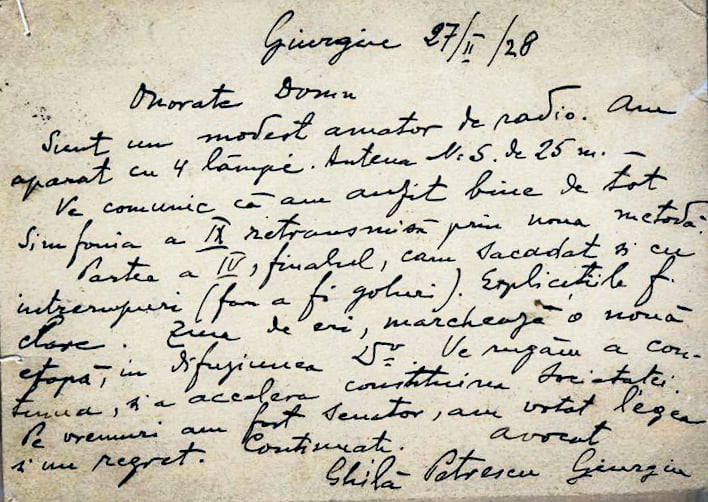 Giurgiu 27/II/28
Onorate Domn
Sunt un modest amator de radio. Am
aparat cu 4 lămpi. Antena N. S. de 25 m. —
Ve comunic că am auzit bine de tot
Simfonia a IX retransmisă prin noua metodă.
Partea a IV, finalul, cam sacadat și cu
intreruperi (fără a fi goluri). Explicațiile f.
clare. Ziua de eri, marchează o nouă
etapă, in difuziunea. Ve rugăm a con-
tinua, și a accelera constituirea Societatei.
Pe vremuri am fost Senator, am votat legea
și nu regret. Continuati. avocat
Ghilă Petrescu Giurgiu